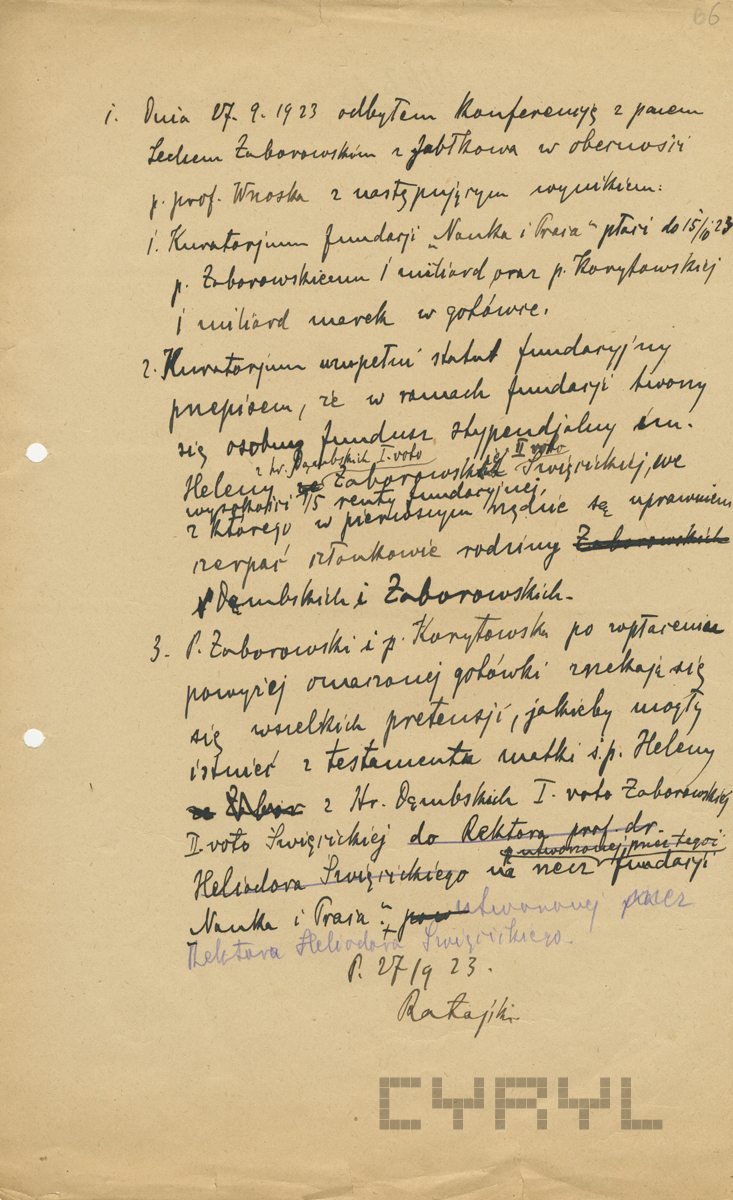 66
1. Dnia 27. 9. 1923 odbyłem konferencję z panem
Lechem Zaborowskim z Jabłkowa w obecności
p. prof. Wnoska z następującym wynikiem:
1. Kuratorjum fundacji „Nauka i Praca" płaci do 15/10 23
p. Zaborowskiemu 1 miliard oraz p. Korytowskiej
1 miliard marek w gotówce.
2. Kuratorjum uzupełni statut fundacyjny
przepisem, że w ramach fundacji tworzy
się osobny fundusz stypendjalny im.
z hr. Dąmbskich I. voto II voto
Heleny Zaborowskiej Święcickiej, we
wysokości 1/5 renty fundacyjnej,
z którego w pierwszym rzędzie są uprawnieni
czerpać członkowie rodziny Zaborowskich
Dąmbskich i Zaborowskich.
3. P. Zaborowski i p. Korytowska po wpłaceniu
powyżej oznaczonej gotówki zrzekają się
się wszelkich pretensji, jakieby mogły
istnieć z testamentu matki ś.p. Heleny
z Hr. Dąmbskich I. voto Zaborowskiej
II. voto Święcickiej do Rektora prof. dr.
utworzonej przez tegoż
Heliodora Święcickiego na rzecz fundacji
Nauka i Praca" utworzonej przez
Rektora Heliodora Święcickiego.
P. 27/9 23.
Ratajski
CYRYL